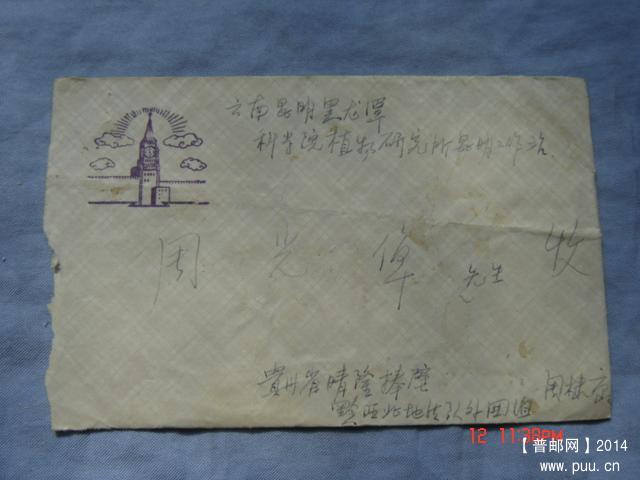 云南昆明黑龙潭
科学院植物研究所昆明工作站
周光倬 先生 收
貴州省晴隆捧壁
黔西北地质队外围组
周
12 11:38PM
【普邮网】2014
www.puu.cn